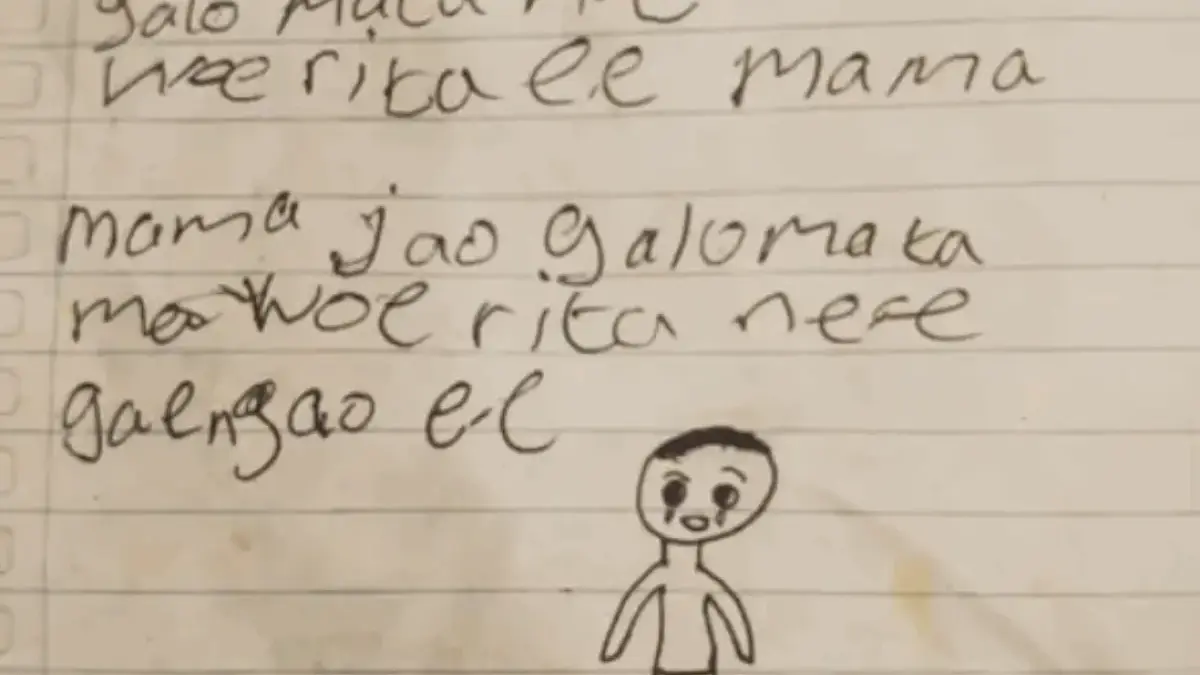 galo mata
woe rita ee mama
mama jao galomata
woe rita nese
gaengao ee